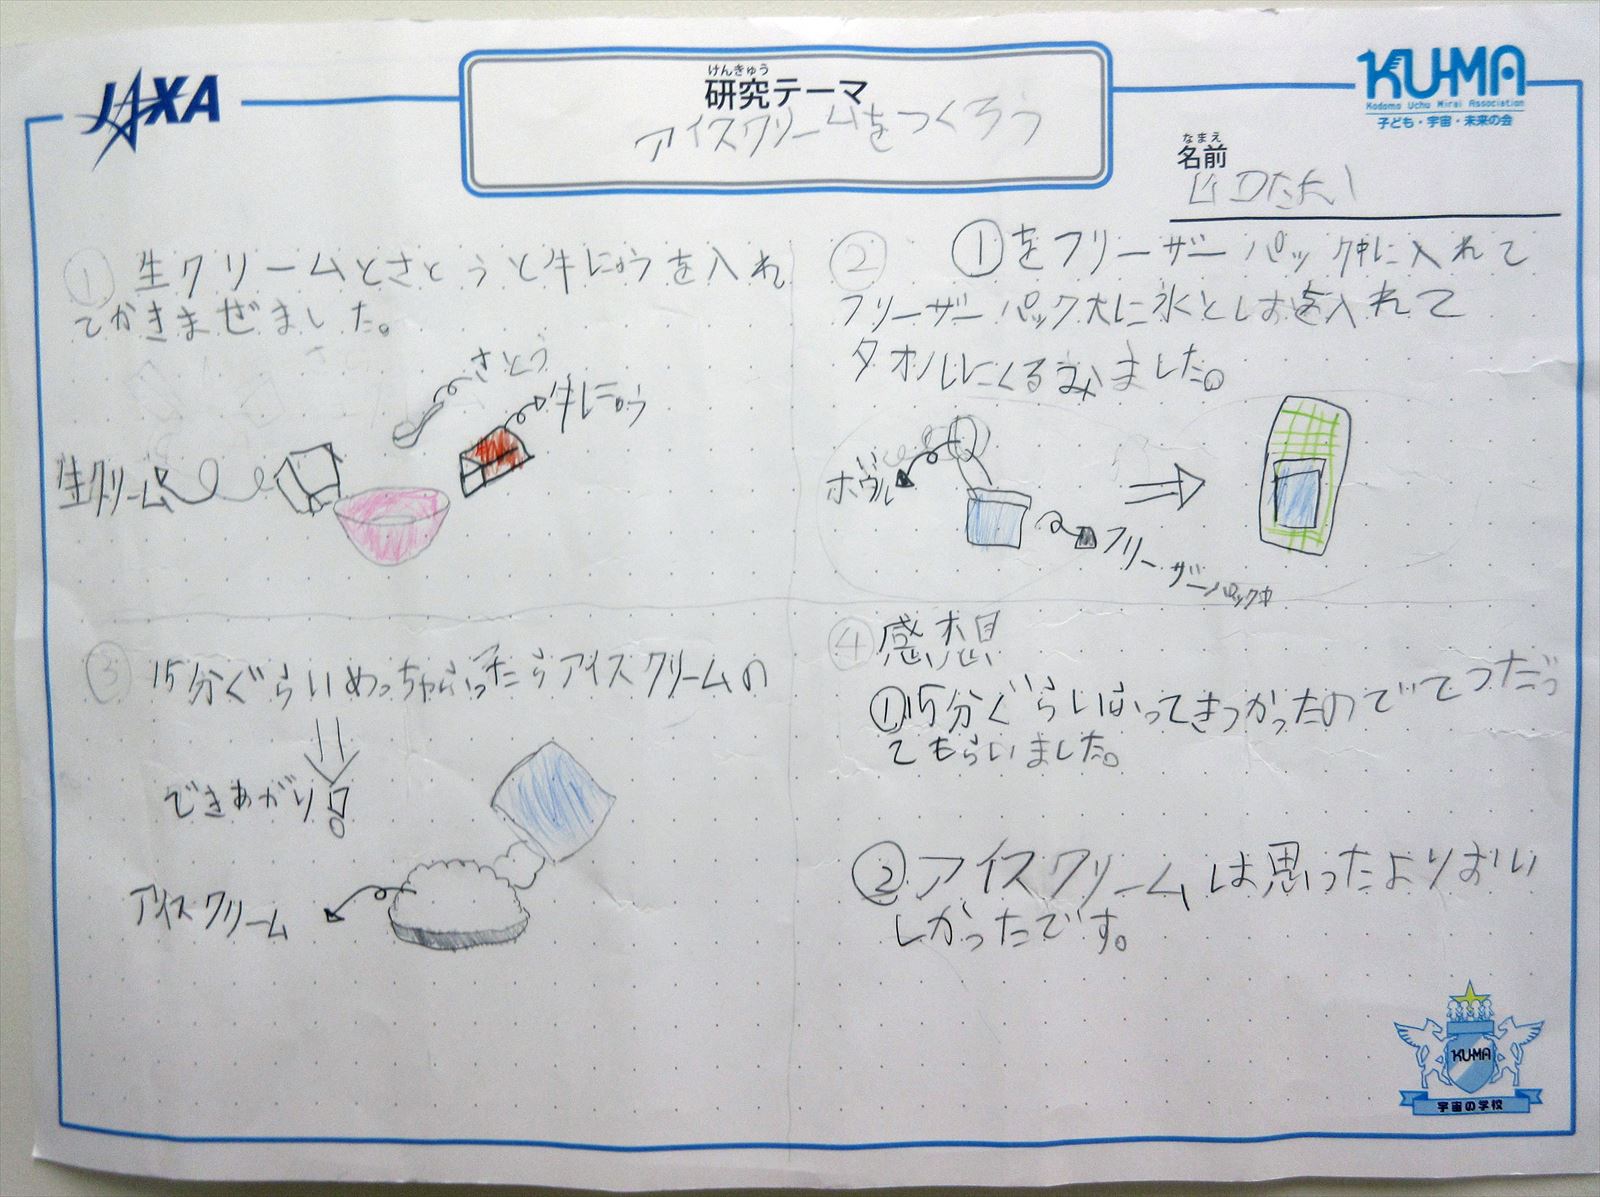 JAXA
けんきゅう
研究テーマ
アイスクリームをつくろう
KU-MA
Kodomo Uchu Mirai Association
子ども・宇宙・未来の会
なまえ
名前
① 生クリームとさとうと牛にゅうを入れ
てかきまぜました。
さとう
牛にゅう
生クリーム
② ①をフリーザーパック中に入れて
フリーザーパック大に氷としおを入れて
タオルにくるみました。
ボウル
フリーザーパック中
③ 15分ぐらいめっちゃふったらアイスクリームの
できあがり!
アイスクリーム
④ 感想
①15分ぐらいふってきつかったのでてつだっ
てもらいました。
②アイスクリームは思ったよりおい
しかったです。
KU-MA
宇宙の学校